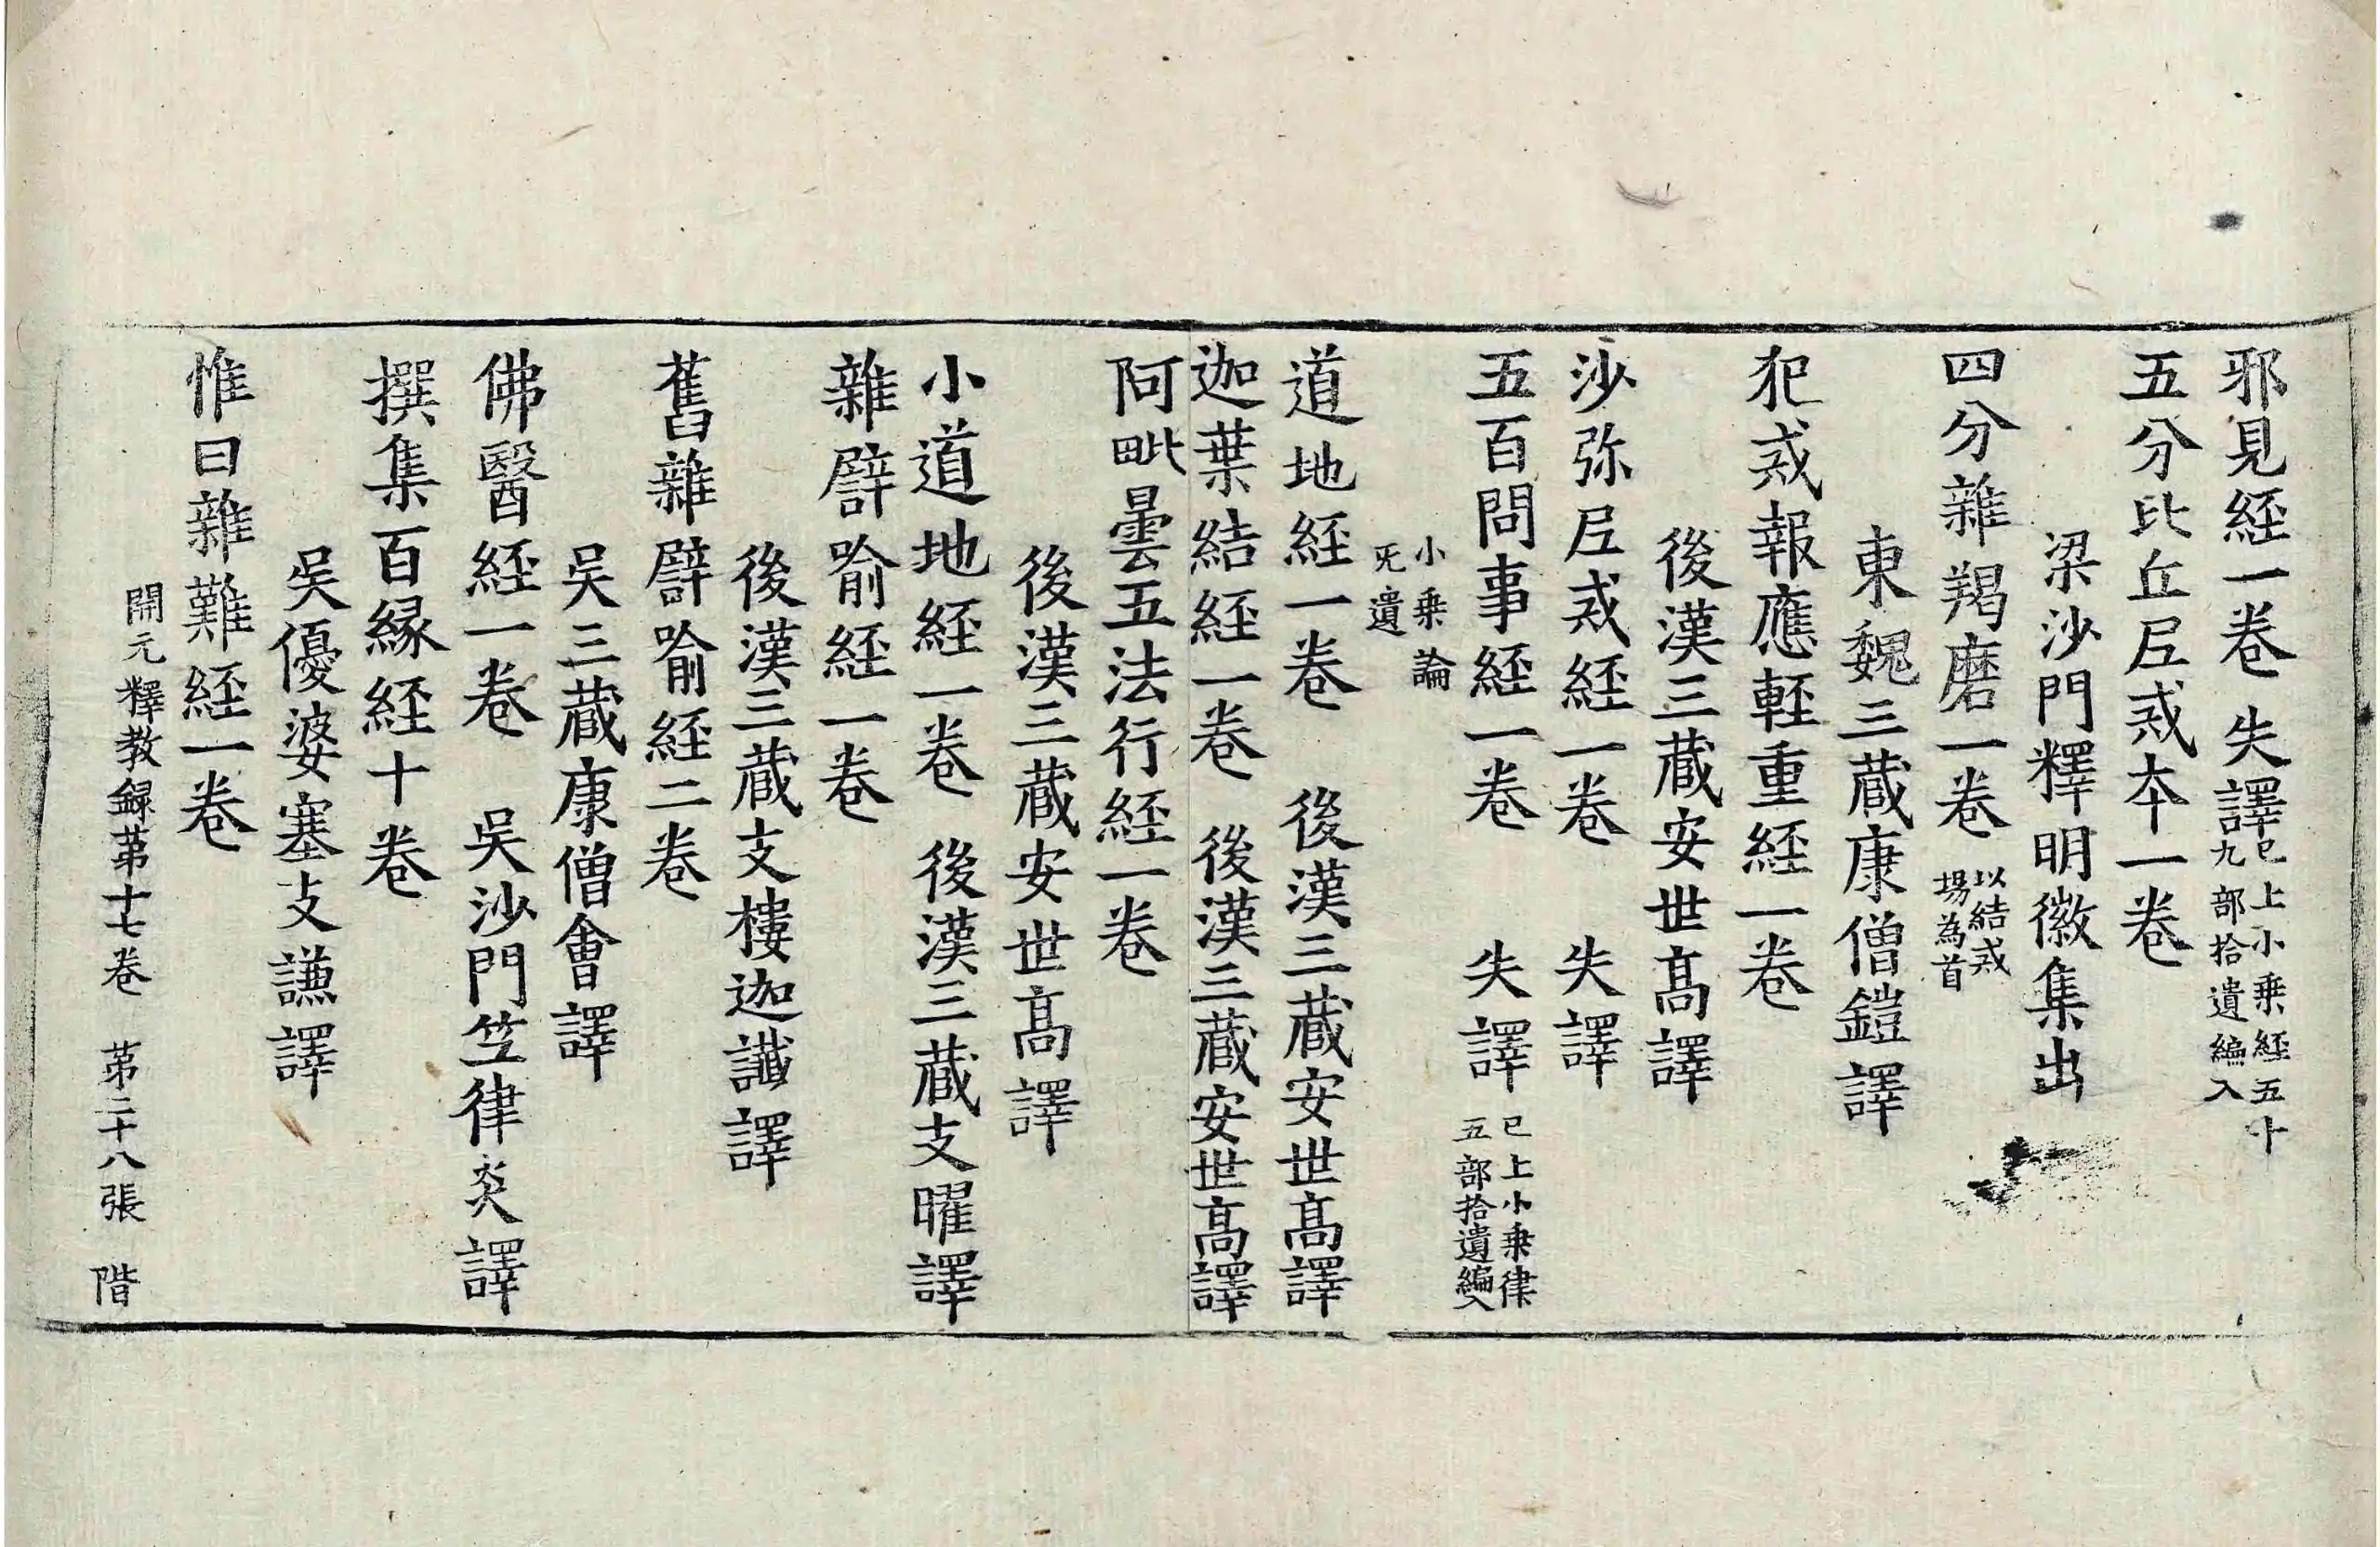 邪見経一卷 失譯已上小乗経五十九部拾遺編入
五分比丘尼戒本一卷
梁沙門釋明徽集出
四分雜羯磨一卷 以結戒場為首
東魏三蔵康僧鎧譯
犯戒報應軽重経一卷
後漢三蔵安世髙譯
沙弥尼戒経一卷 失譯
五百問事経一卷 失譯 已上小乗律五部拾遺編入
小乗論
無遺
道地経一卷 後漢三蔵安世髙譯
迦葉結経一卷 後漢三蔵安世髙譯
阿毗曇五法行経一卷
後漢三蔵安世髙譯
小道地経一卷 後漢三蔵支曜譯
雜譬喻経一卷
後漢三蔵支樓迦讖譯
舊雜譬喻経二卷
吳三蔵康僧會譯
佛醫経一卷 吳沙門竺律炎譯
撰集百縁経十卷
吳優婆塞支謙譯
惟曰雜難経一卷
開元釋教録苐十七卷 苐二十八張 階